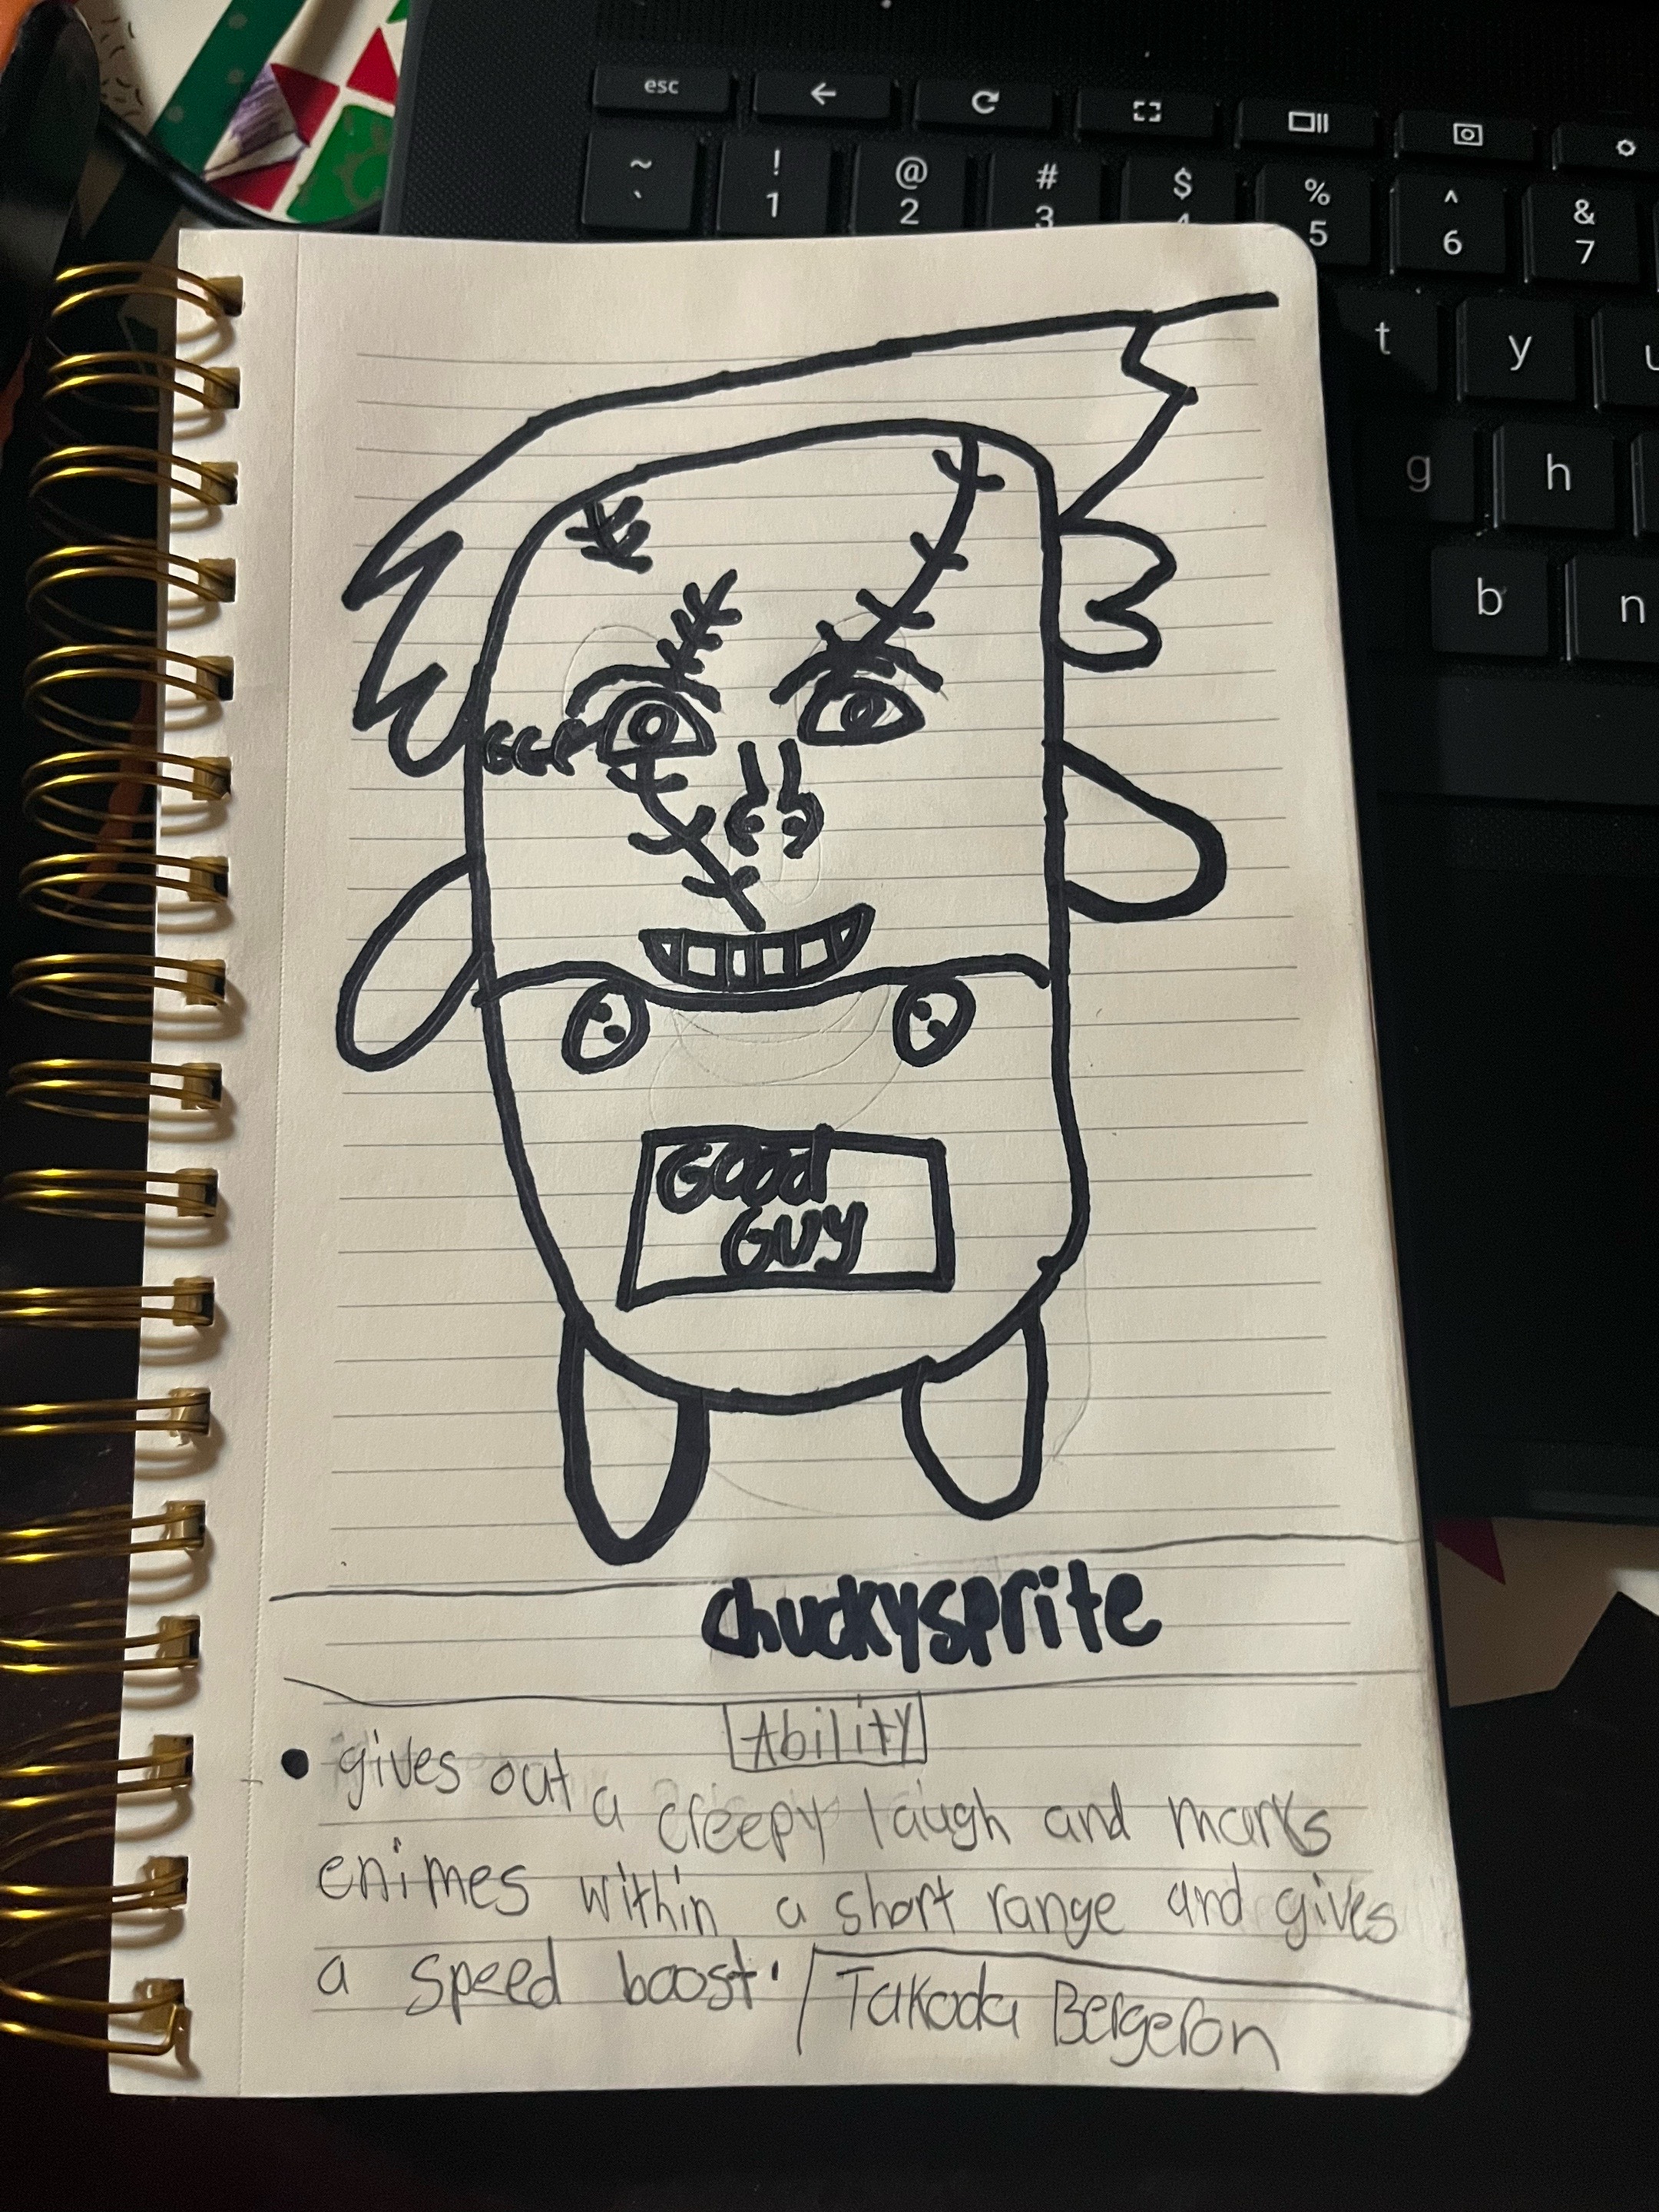 esc
~ ! @ # $ % ^ &
` 1 2 3 4 5 6 7
t y u
g h
b n
Good
Guy
chuckysprite
Ability
• gives out a creepy laugh and marks
enimes within a short range and gives
a speed boost.
Takoda Bergeron